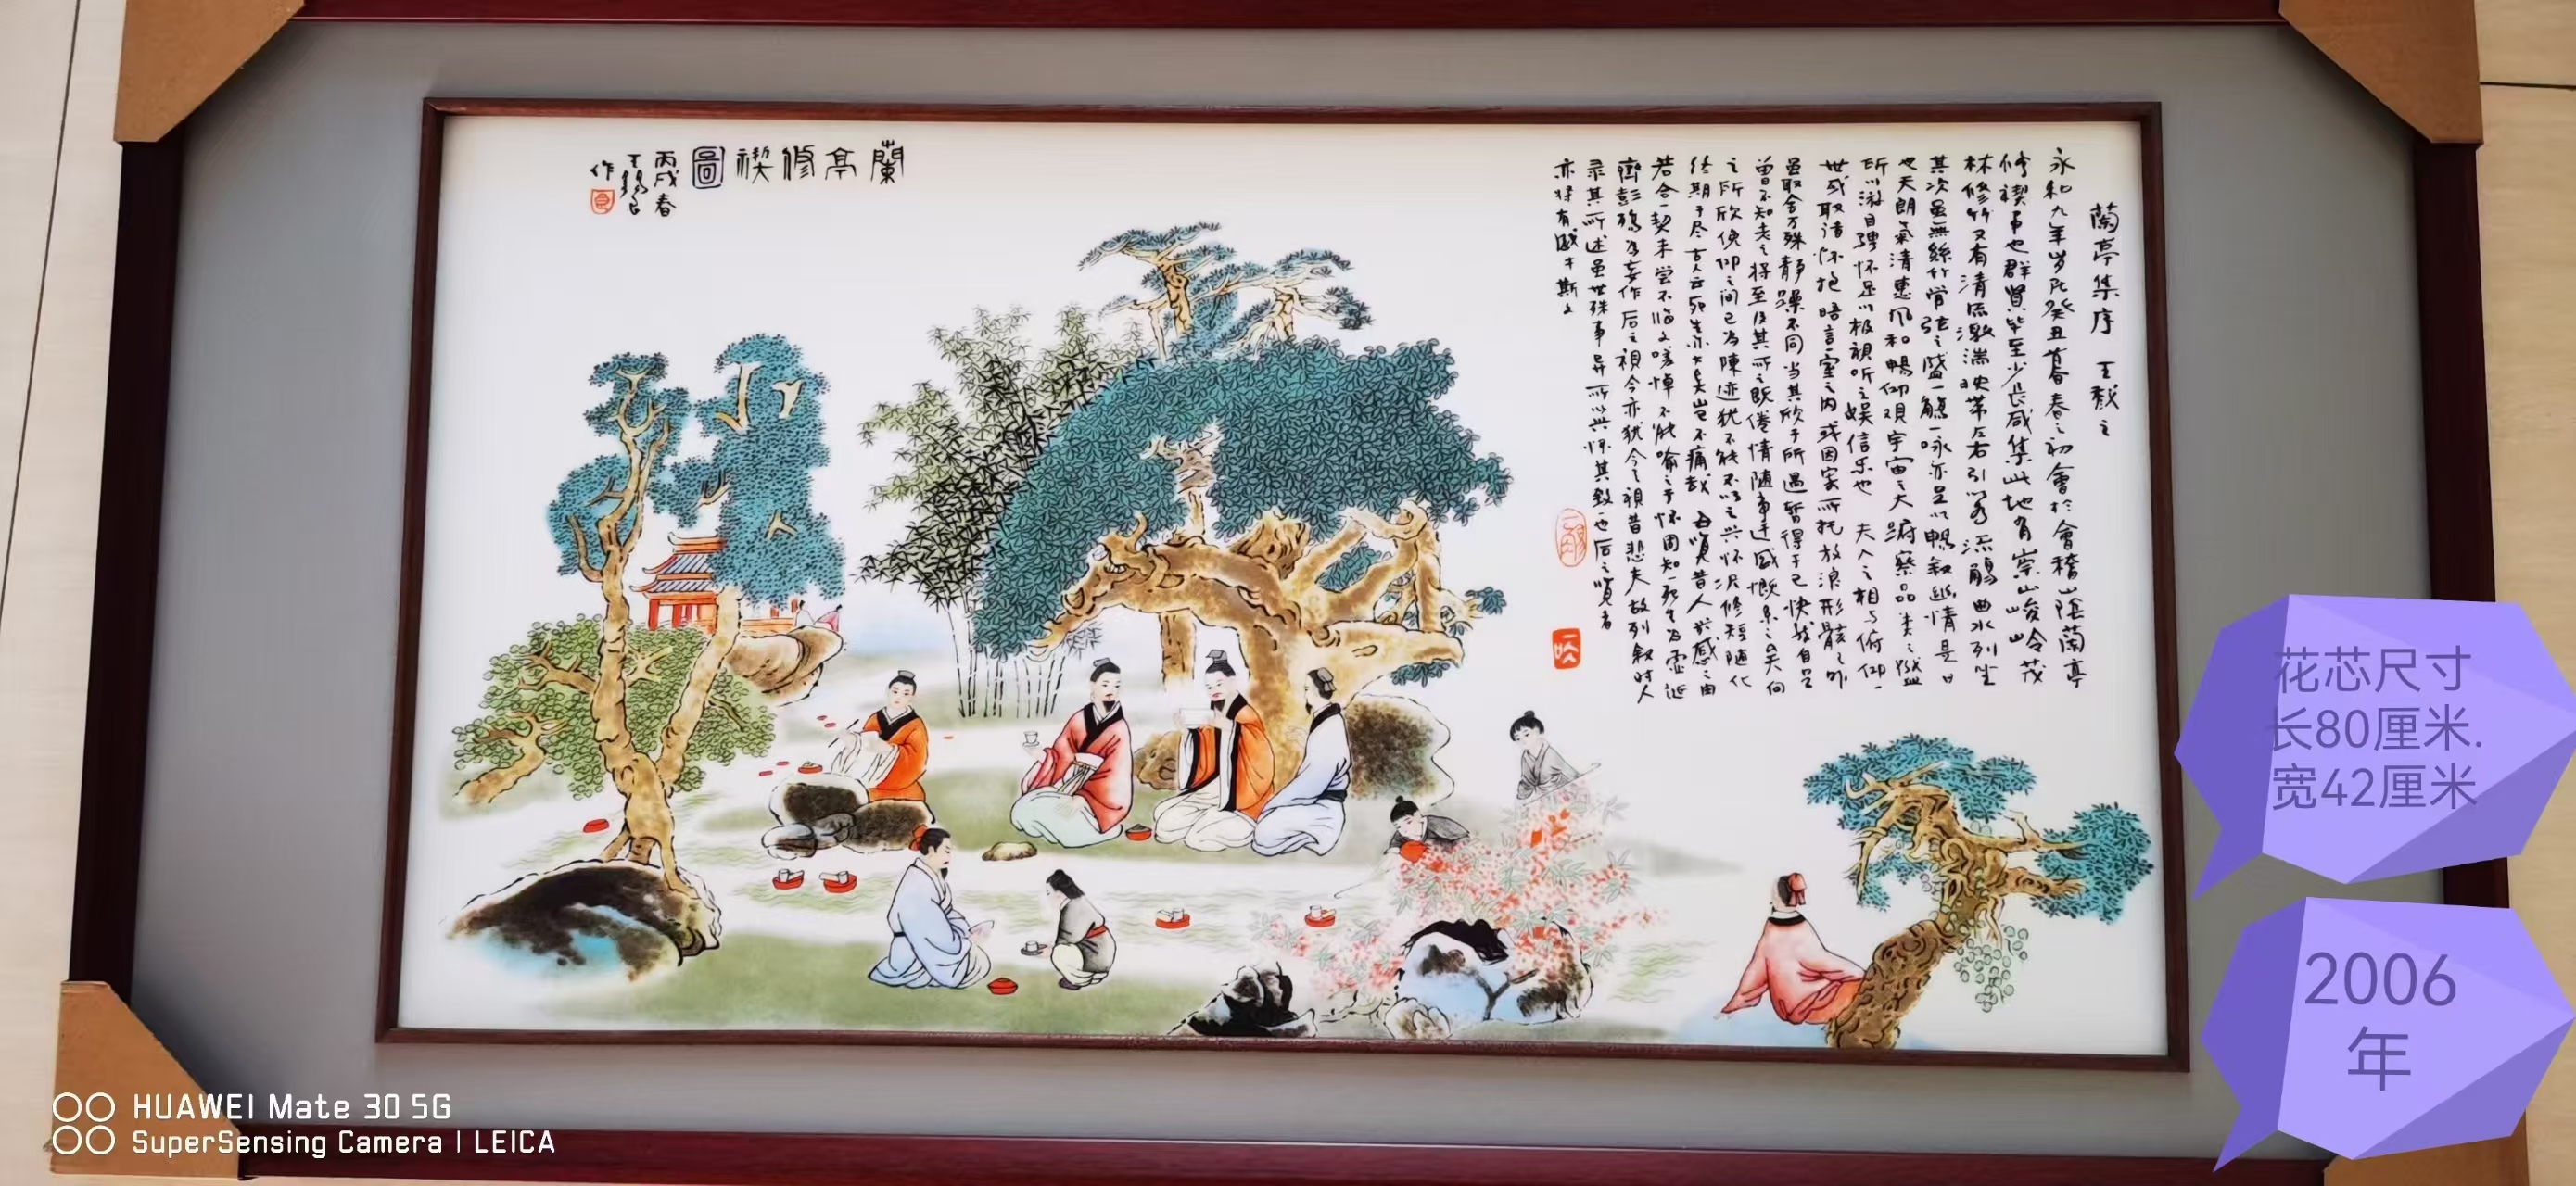 蘭亭集序 王羲之
永和九年岁在癸丑暮春之初會於會稽山陰蘭亭
修禊事也群賢毕至少长咸集此地有崇山峻岭茂
林修竹又有清流激湍映带左右引以為流觴曲水列坐
其次虽無絲竹管弦之盛一觴一咏亦足以暢叙幽情是日
也天朗氣清惠风和暢仰观宇宙之大俯察品类之盛
所以游目骋怀足以极視听之娱信乐也 夫人之相与俯仰一
世或取诸怀抱晤言一室之内或因寄所托放浪形骸之外
虽取舍万殊静躁不同当其欣于所遇暂得于己快然自足
曾不知老之将至及其所之既倦情随事迁感慨系之矣向
之所欣俛仰之间已为陳迹犹不能不以之兴怀况修短随化
终期于尽古人云死生亦大矣岂不痛哉 每览昔人兴感之由
若合一契未尝不临文嗟悼不能喻之于怀固知一死生为虚诞
齊彭殇為妄作后之視今亦犹今之視昔悲夫故列叙时人
录其所述虽世殊事异所以兴怀其致一也后之览者
亦将有感于斯文
蘭亭修禊圖
丙戌春
王锡良
作
花芯尺寸
长80厘米.
宽42厘米
2006
年
HUAWEI Mate 30 5G
SuperSensing Camera | LEICA